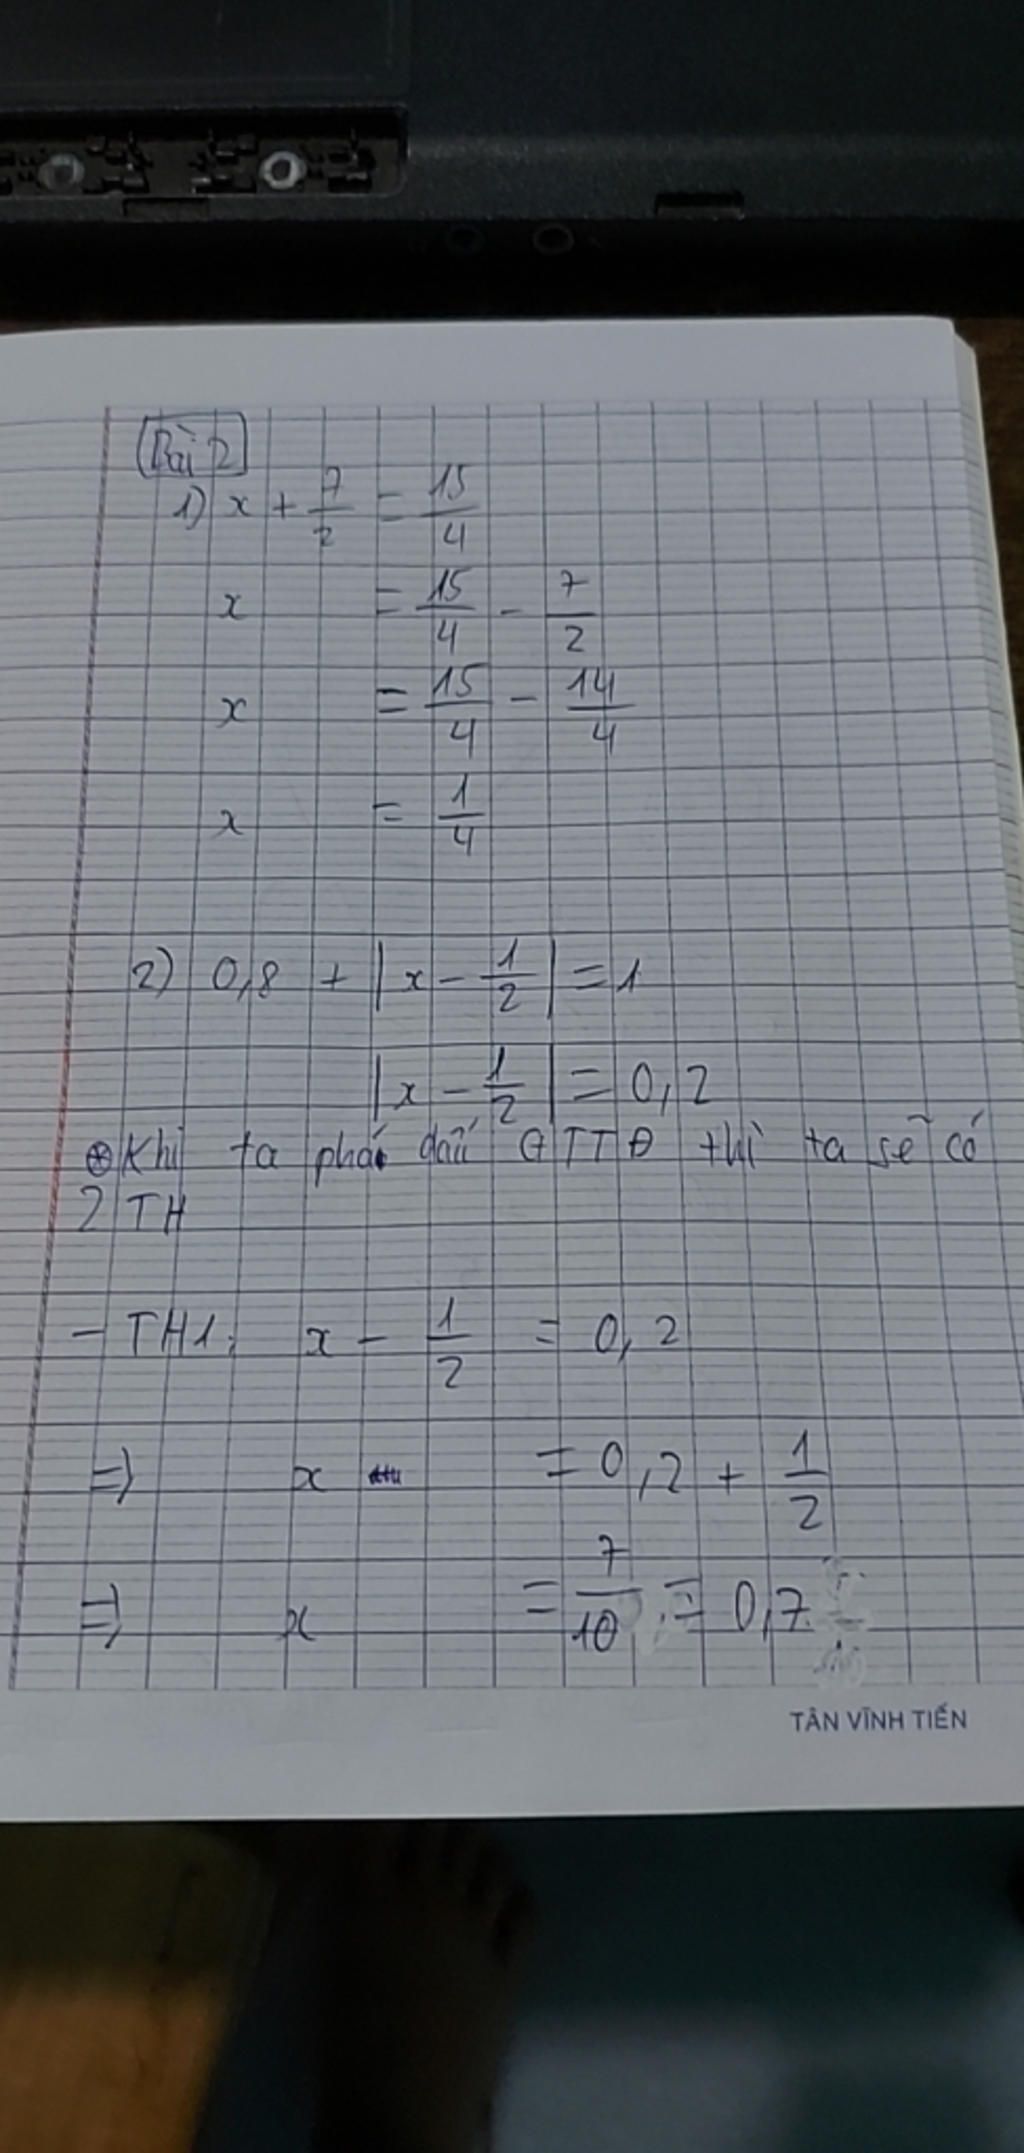 Bài 2
1) x + 7/2 = 15/4
x = 15/4 - 7/2
x = 15/4 - 14/4
x = 1/4
2) 0,8 + |x - 1/2| = 1
|x - 1/2| = 0,2
⊛ Khi ta phá dấu GTTĐ thì ta sẽ có
2 TH
- TH1: x - 1/2 = 0,2
=> x = 0,2 + 1/2
=> x = 7/10 = 0,7
TÂN VĨNH TIẾN